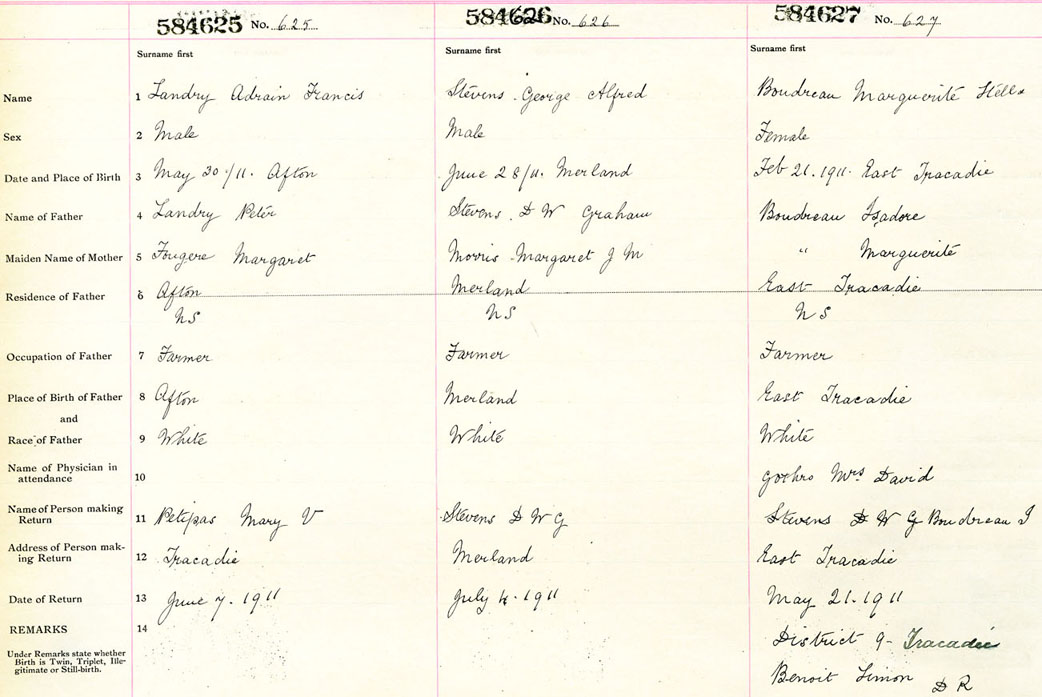 584625 No. 625 584626 No. 626 584627 No. 627
Surname first Surname first Surname first
Name 1 Landry Adrain Francis Stevens George Alfred Boudreau Marguerite Stella
Sex 2 Male Male Female
Date and Place of Birth 3 May 20/11. Afton June 28/11. Merland Feb 21. 1911. East Tracadie
Name of Father 4 Landry Peter Stevens. D W Graham Boudreau Isadore
Maiden Name of Mother 5 Fougere Margaret Morris Margaret J M " Marguerite
Residence of Father 6 Afton Merland East Tracadie
NS NS NS
Occupation of Father 7 Farmer Farmer Farmer
Place of Birth of Father 8 Afton Merland East Tracadie
and
Race of Father 9 White White White
Name of Physician in
attendance 10 Mrs David
Name of Person making
Return 11 Petipas Mary V Stevens D W G Stevens D W G Boudreau I
Address of Person mak-
ing Return 12 Tracadie Merland East Tracadie
Date of Return 13 June 7. 1911 July 4. 1911 May 21. 1911
REMARKS 14 District 9- Tracadie
Under Remarks state whether
Birth is Twin, Triplet, Ille-
gitimate or Still-birth.
Benoit Simon D R